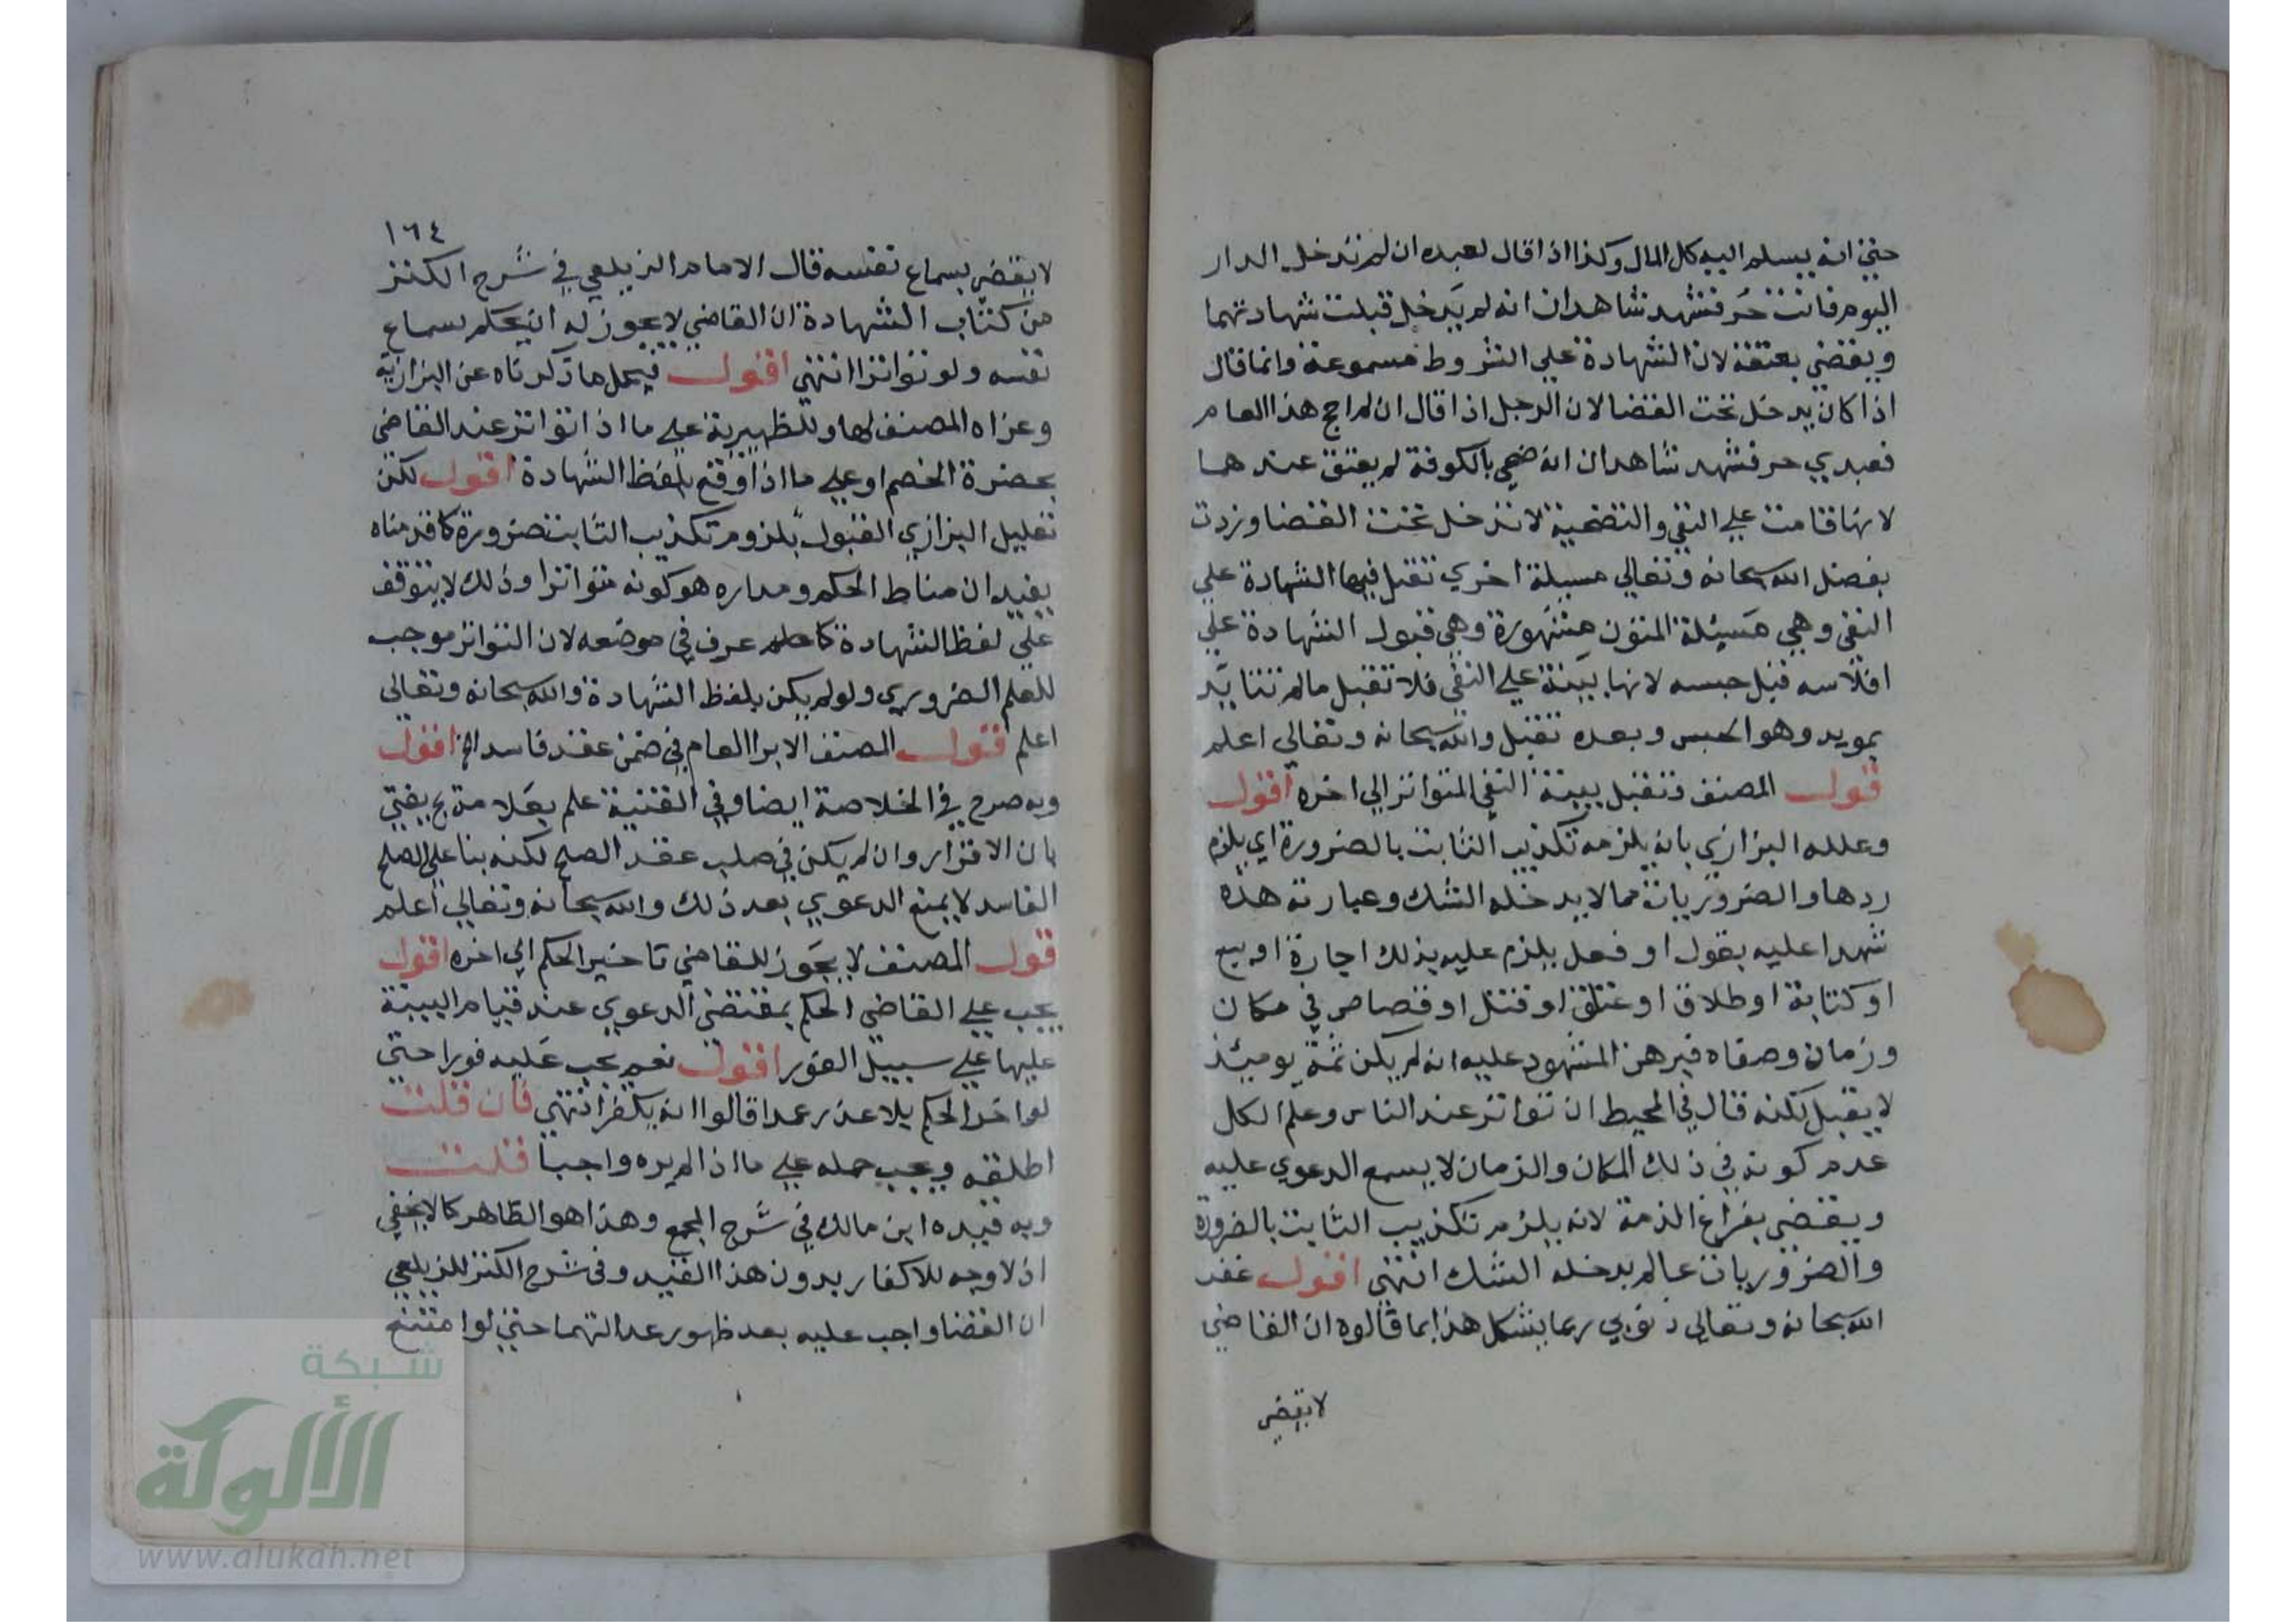 حتى انه يسلم اليه كل المال وكذا اذا قال لعبده ان لم تدخل الدار
اليوم فانت حر فشهد شاهدان انه لم يدخل قبلت شهادتهما
ويقضي بعتقه لان الشهادة علي الشروط مسموعة وانما قال
اذا كان يدخل تحت القضا لان الرجل اذا قال ان لم احج هذا العام
فعبدي حر فشهد شاهدان انه ضحي بالكوفة لم يعتق عندهما
لانها قامت علي النفي والتضحية لا تدخل تحت القضا وزدت
بفضل الله سبحانه وتعالي مسيلة اخري تقبل فيها الشهادة علي
النفي وهي مسيلة المتون مشهورة وهي قبول الشهادة علي
افلاسه قبل حبسه لانها بينة علي النفي فلا تقبل مالم تتايد
بمويد وهو الحبس وبعده تقبل والله سبحانه وتعالي اعلم
قول المصنف وتقبل بينة النفي المتواتر الي اخره اقول
وعلله البزازي بانه يلزمه تكذيب الثابت بالضرورة اي يلزم
ردها والضروريات مما لا يدخله الشك وعبارته هذه
شهدا عليه بقول او فعل يلزم عليه بذلك اجارة او بيع
او كتابة او طلاق او عتاق او قتل او قصاص في مكان
وزمان وصفاه فبرهن المشهود عليه انه لم يكن ثمة يوميئذ
لا يقبل لكنه قال في المحيط ان تواتر عند الناس وعلم الكل
عدم كونه في ذلك المكان والزمان لا يسمع الدعوي عليه
ويقضي بفراغ الذمة لانه يلزم تكذيب الثابت بالضرورة
والضروريات مالم يدخله الشك انتهي اقول غفر
الله سبحانه وتعالي ذنوبي ربما يشكل هذا بما قالوه ان القاضي
لا يقضي
١٦٤
لا يقضي بسماع نفسه قال الامام الزيلعي في شرح الكنز
من كتاب الشهادة ان القاضي لا يجوز له ان يحكم بسماع
نفسه ولو تواترا انتهي اقول فيحمل ما ذكرناه عن البزازية
وعزاه المصنف لها وللظهيرية علي ما اذا تواتر عند القاضي
بحضرة الخصم او علي ما اذا وقع بلفظ الشهادة اقول لكن
تعليل البزازي القبول بلزوم تكذيب الثابت ضرورة كما قدمناه
يفيد ان مناط الحكم ومداره هو كونه متواترا وذلك لا يتوقف
علي لفظ الشهادة كما عرف في موضعه لان التواتر موجب
للعلم الضروري ولو لم يكن بلفظ الشهادة والله سبحانه وتعالي
اعلم قول المصنف الابرا العام في ضمن عقد فاسد الخ اقول
وبه صرح في الخلاصة ايضا وفي القنية علم بعلامة بح يفتي
بان الاقرار وان لم يكن في صلب عقد الصلح لكنه بنا علي الصلح
الفاسد لا يمنع الدعوي بعد ذلك والله سبحانه وتعالي اعلم
قول المصنف لا يجوز للقاضي تاخير الحكم الي اخره اقول
يجب علي القاضي الحكم بمقتضي الدعوي عند قيام البينة
عليها علي سبيل الفور اقول نعم يجب عليه فورا حتي
لو اخر الحكم بلا عذر عمدا قالوا انه يكفر انتهي فان قلت
اطلقه ويجب حمله علي ما اذا لم يره واجبا قلت
وبه قيده ابن مالك في شرح المجمع وهذا هو الظاهر كما لا يخفي
اذ لا وجه للاكفار بدون هذا القيد وفي شرح الكنز للزيلعي
ان القضا واجب عليه بعد ظهور عدالتهما حتي لو امتنع
شبكة
الألوكة
www.alukah.net